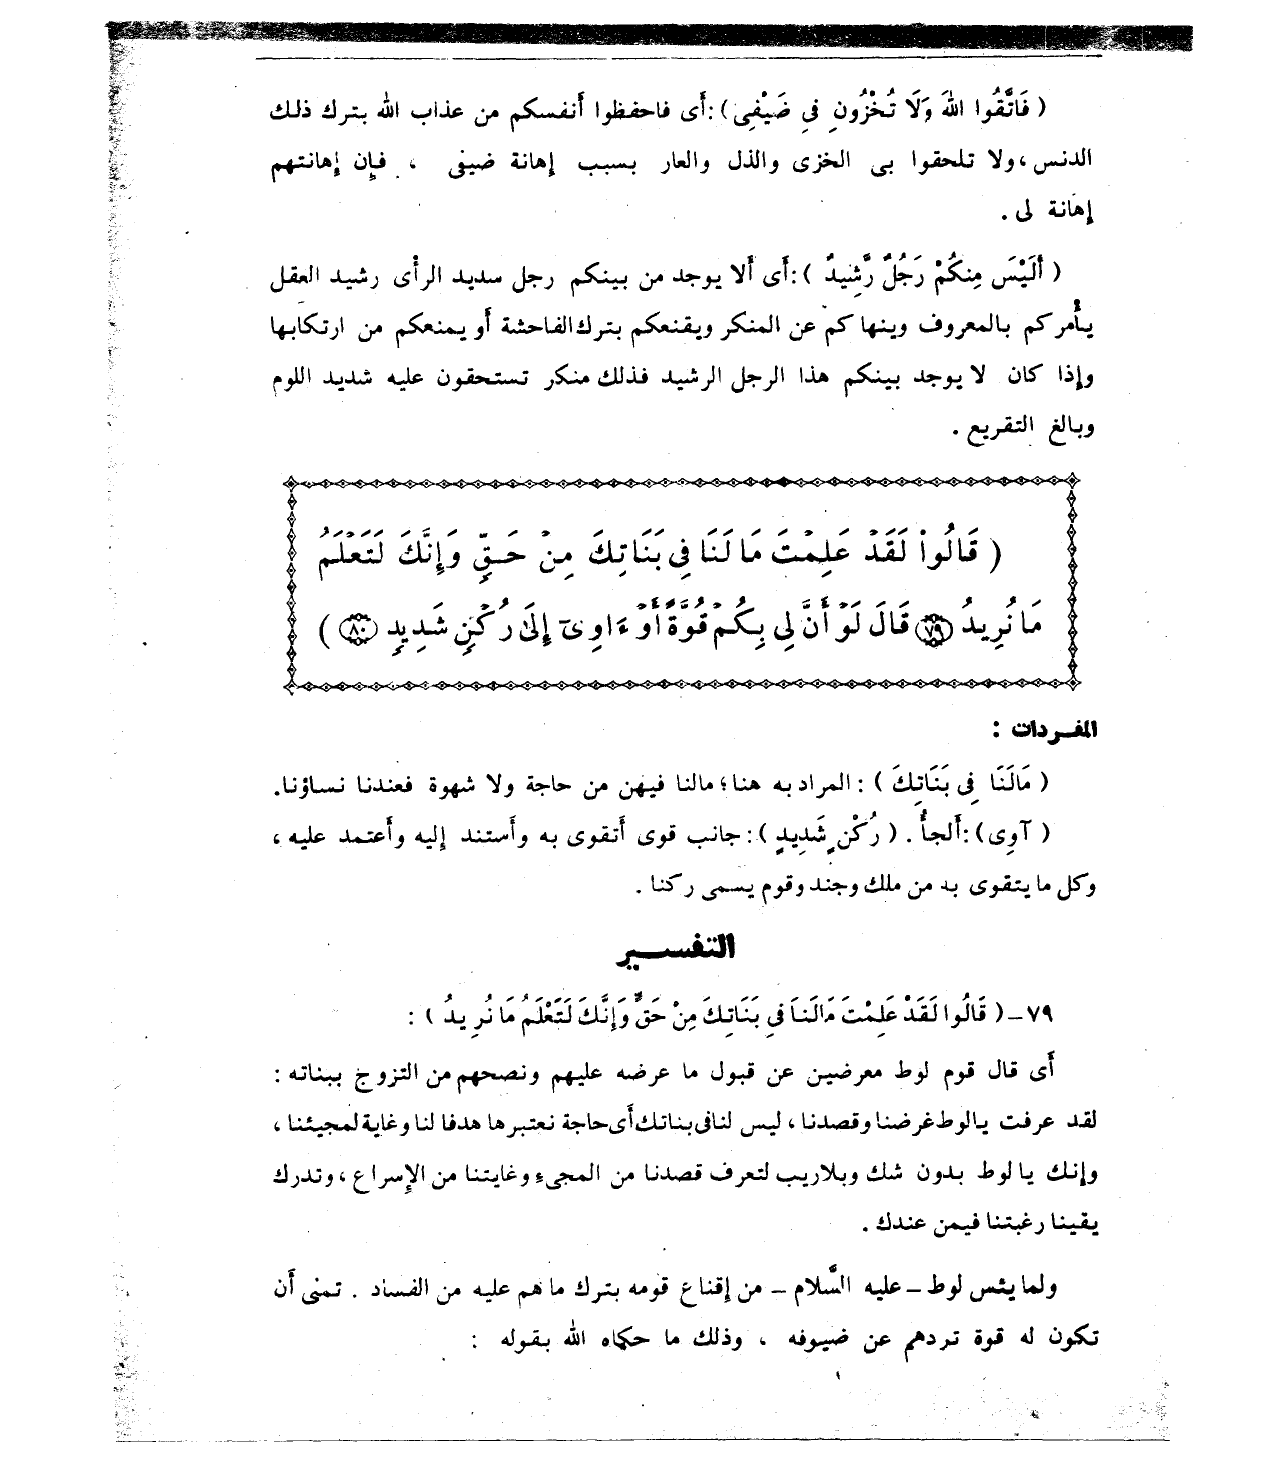 ( فَاتَّقُوا اللهَ وَلَا تُخْزُونِ فِي ضَيْفِى ) : أَى فاحفظوا أنفسكم من عذاب الله بترك ذلك
الدنس ، ولا تلحقوا بى الخزى والذل والعار بسبب إهانة ضيفى ، فإن إهانتهم
إهانة لى .
( أَلَيْسَ مِنكُمْ رَجُلٌ رَّشِيدٌ ) : أَى ألا يوجد من بينكم رجل سديد الرأى رشيد العقل
يأمركم بالمعروف وينهاكم عن المنكر ويقنعكم بترك الفاحشة أو يمنعكم من ارتكابها
وإذا كان لا يوجد بينكم هذا الرجل الرشيد فذلك منكر تستحقون عليه شديد اللوم
وبالغ التقريع .
( قَالُوا۟ لَقَدْ عَلِمْتَ مَا لَنَا فِى بَنَاتِكَ مِنْ حَقٍّ وَإِنَّكَ لَتَعْلَمُ
مَا نُرِيدُ ٧٩ قَالَ لَوْ أَنَّ لِى بِكُمْ قُوَّةً أَوْ ءَاوِىٓ إِلَىٰ رُكْنٍ شَدِيدٍ ٨٠ )
المفـردات :
( مَالَنَا فِى بَنَاتِكَ ) : المراد به هنا ؛ مالنا فيهن من حاجة ولا شهوة فعندنا نساؤنا .
( آوِى ) : ألجأُ . ( رُكْنٍ شَدِيدٍ ) : جانب قوى أتقوى به وأستند إليه وأعتمد عليه ،
وكل ما يتقوى به من ملك وجند وقوم يسمى ركنا .
التفسـير
٧٩ – ( قَالُوا لَقَدْ عَلِمْتَ مَالَنَا فِى بَنَاتِكَ مِنْ حَقٍّ وَإِنَّكَ لَتَعْلَمُ مَا نُرِيدُ ) :
أى قال قوم لوط معرضين عن قبول ما عرضه عليهم ونصحهم من التزوج ببناته :
لقد عرفت يالوط غرضنا وقصدنا ، ليس لنا فى بناتك أى حاجة نعتبرها هدفا لنا وغاية لمجيئنا ،
وإنك يا لوط بدون شك وبلاريب لتعرف قصدنا من المجىء وغايتنا من الإسراع ، وتدرك
يقينا رغبتنا فيمن عندك .
ولما يئس لوط – عليه السَّلام – من إقناع قومه بترك ما هم عليه من الفساد . تمنى أن
تكون له قوة تردهم عن ضيوفه ، وذلك ما حكاه الله بقوله :